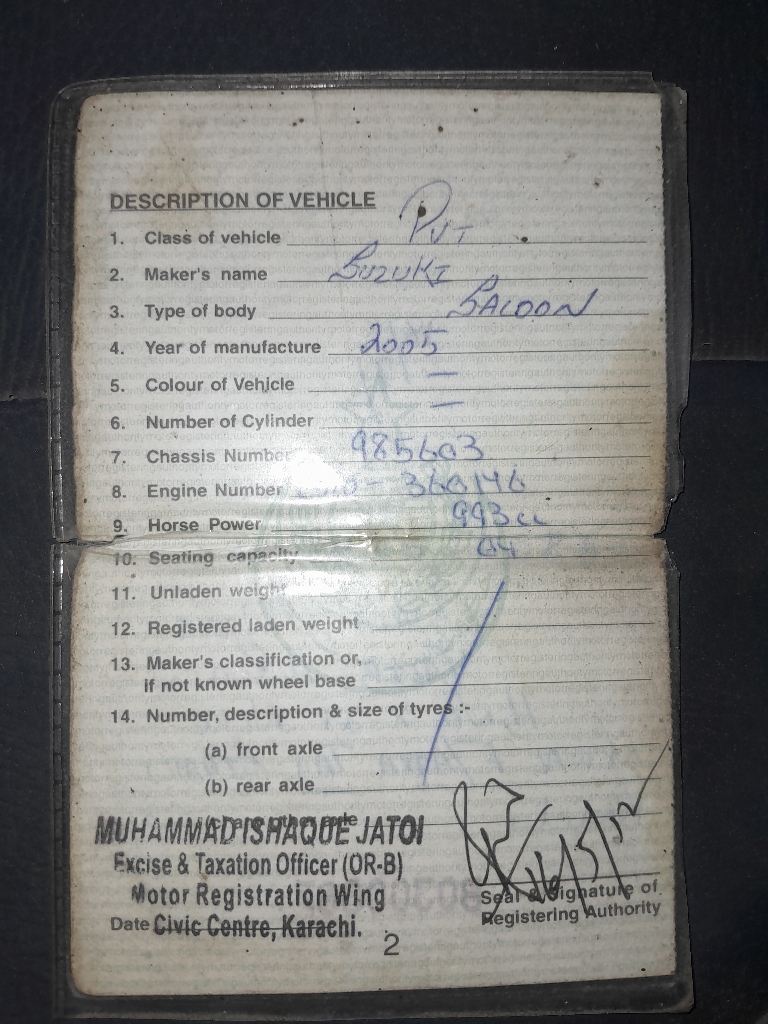 DESCRIPTION OF VEHICLE
1. Class of vehicle PVT
2. Maker's name SUZUKI
3. Type of body SALOON
4. Year of manufacture 2005
5. Colour of Vehicle —
6. Number of Cylinder —
7. Chassis Number 985603
8. Engine Number - 360146
9. Horse Power 993cc
10. Seating capacity 04
11. Unladen weight
12. Registered laden weight
13. Maker's classification or,
if not known wheel base
14. Number, description & size of tyres :-
(a) front axle
(b) rear axle
axle
MUHAMMAD ISHAQUE JATOI
Excise & Taxation Officer (OR-B)
Motor Registration Wing
Date Civic Centre, Karachi.
16/5/12
Seal & Signature of
Registering Authority
2